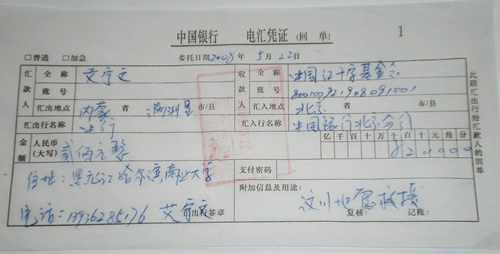 中国银行 电汇凭证(回单) 1
□普通 □加急 委托日期2008年5月22日
汇款人 全称 艾宁文 收款人 全称 中国红十字基金会
账号 账号 800100921908091001
汇出地点 内蒙 省 满洲里 市/县 汇入地点 北京 市/县
汇出行名称 中行 汇入行名称 中国银行北京分行
金额 人民币(大写) 贰佰元整 亿千百十万千百十元角分
住址:黑龙江哈尔滨商业大学 支付密码
附加信息及用途:
汶川地震救援
电话: 艾宁文 汇出行签章 复核: 记账:
此联汇出行给汇款人的回单